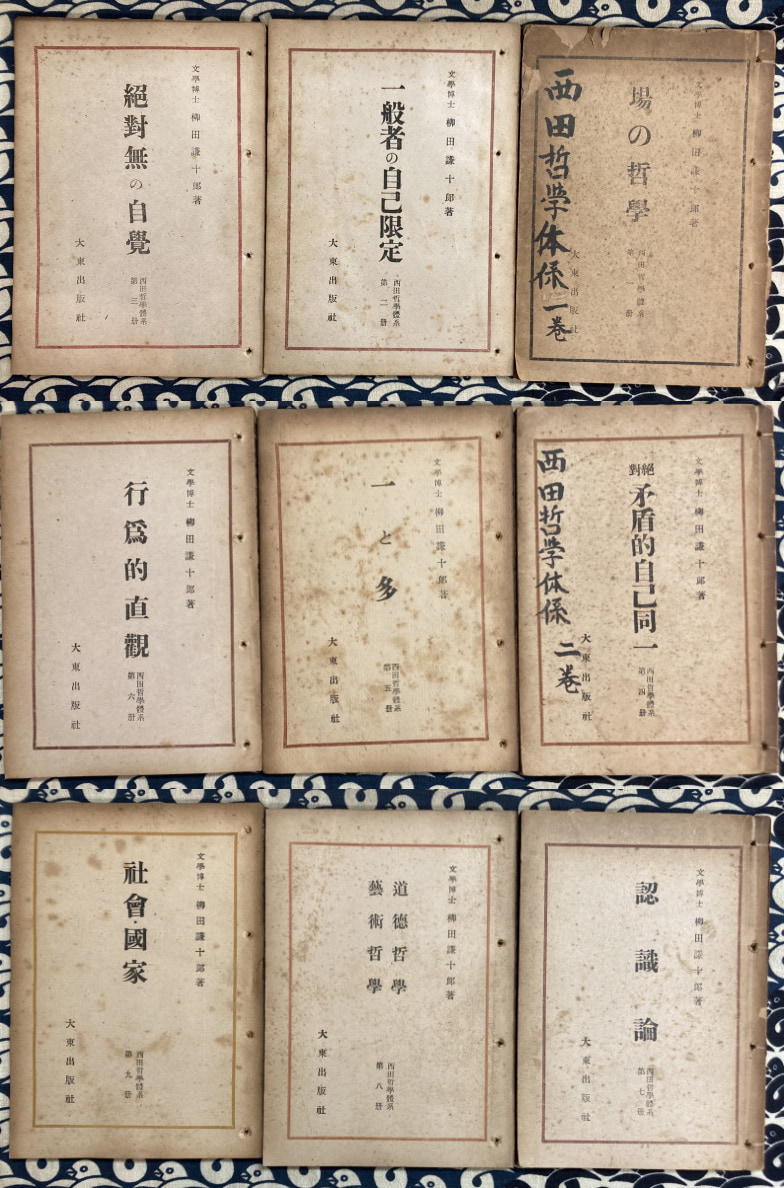 文學博士 柳田謙十郎著
場の哲學
西田哲學體系
第一册
大東出版社
西田哲学体係 一巻
文學博士 柳田謙十郎著
一般者の自己限定
西田哲學體系
第二册
大東出版社
文學博士 柳田謙十郎著
絕對無の自覺
西田哲學體系
第三册
大東出版社
文學博士 柳田謙十郎著
絕對
矛盾的自己同一
西田哲學體系
第四册
大東出版社
西田哲学体係 二巻
文學博士 柳田謙十郎著
一と多
西田哲學體系
第五册
大東出版社
文學博士 柳田謙十郎著
行爲的直觀
西田哲學體系
第六册
大東出版社
文學博士 柳田謙十郎著
認識論
西田哲學體系
第七册
大東出版社
文學博士 柳田謙十郎著
道德哲學
藝術哲學
西田哲學體系
第八册
大東出版社
文學博士 柳田謙十郎著
社會・國家
西田哲學體系
第九册
大東出版社